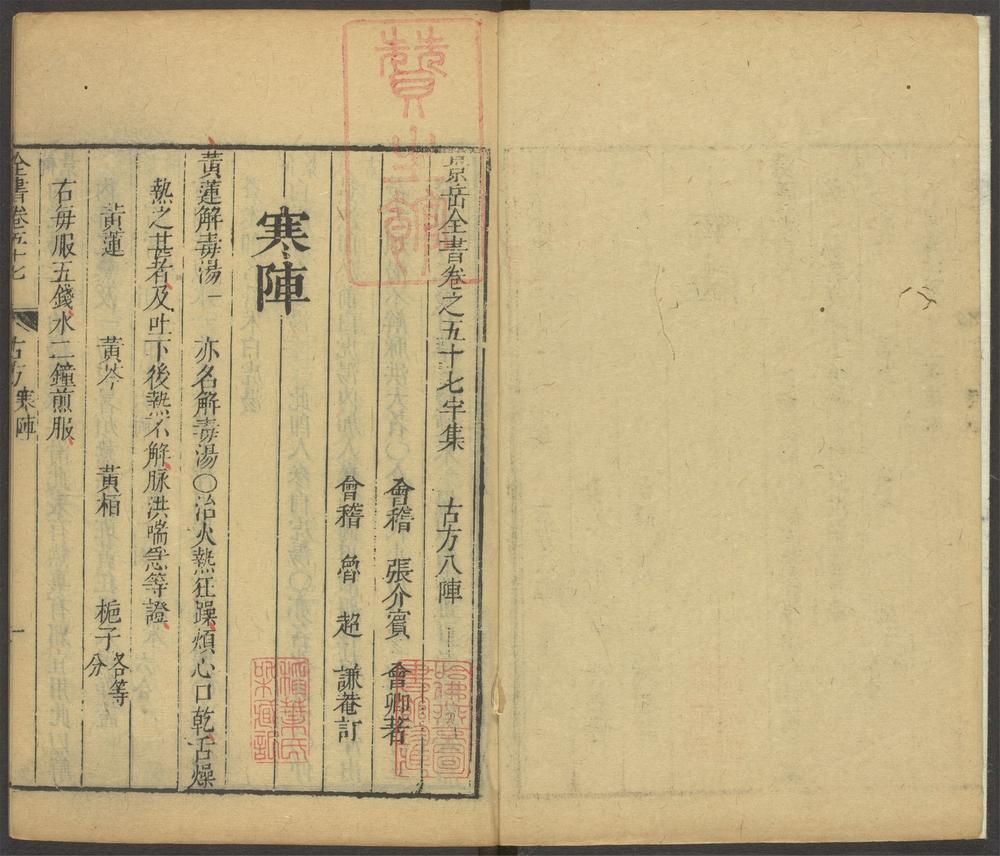 景岳全書卷之五十七宇集 古方八陣
會稽 張介賓 會卿著
會稽 魯超 謙菴訂
寒陣
黃蓮解毒湯一 亦名解毒湯〇治火熱狂躁煩心口乾舌燥
熱之甚者及吐下後熱不解脉洪喘急等證
黃蓮 黃芩 黃栢 梔子各等分
右每服五錢水二鐘煎服
全書卷五十七 古方寒陣 一
哈佛大學